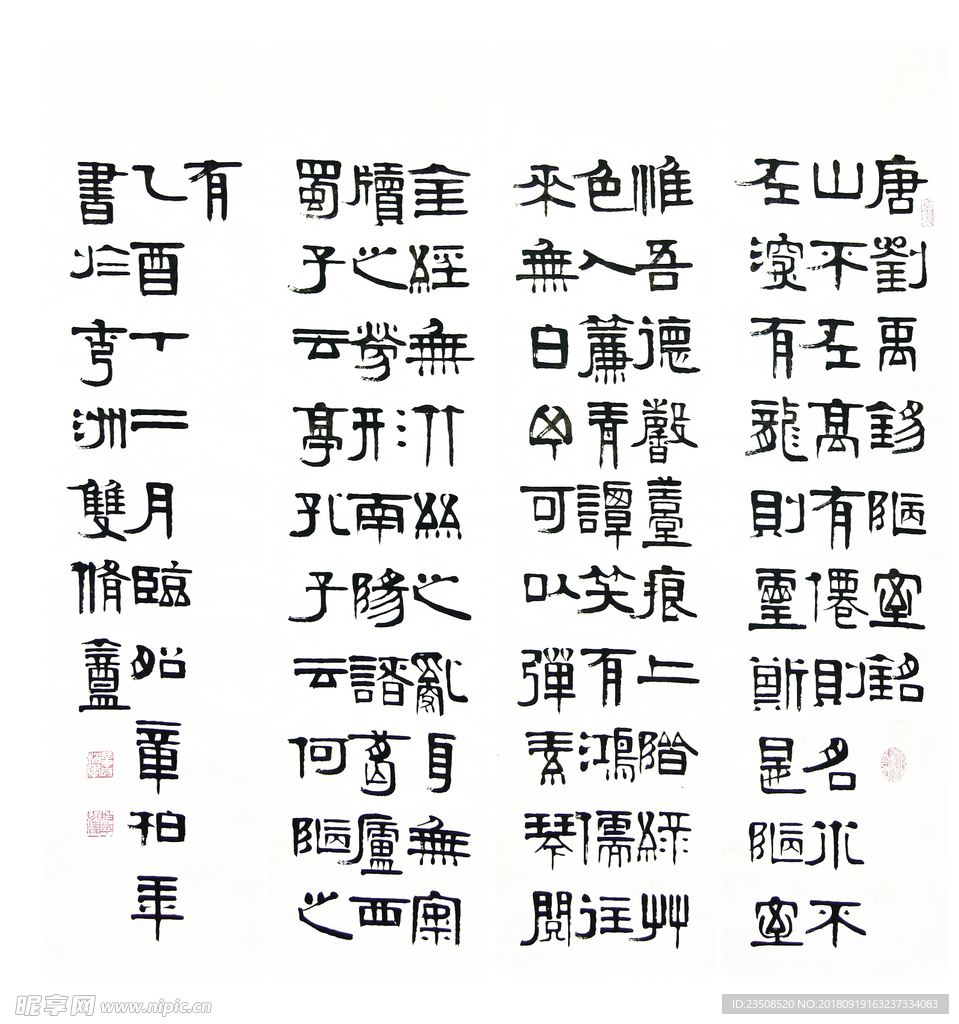 唐劉禹錫陋室銘
山不在高有僊則名水不
在深有龍則靈斯是陋室
惟吾德馨薹痕上階綠艸
色入簾青譚笑有鴻儒往
來無白丁可以彈素琴閱
金經無竹絲之亂耳無案
牘之勞形南陽諸葛廬西
蜀子云亭孔子云何陋之
有
乙酉十二月臨章柏年
書於洲雙脩盦
昵享网 www.nipic.cn
ID:23508520 NO:20180919163237334083